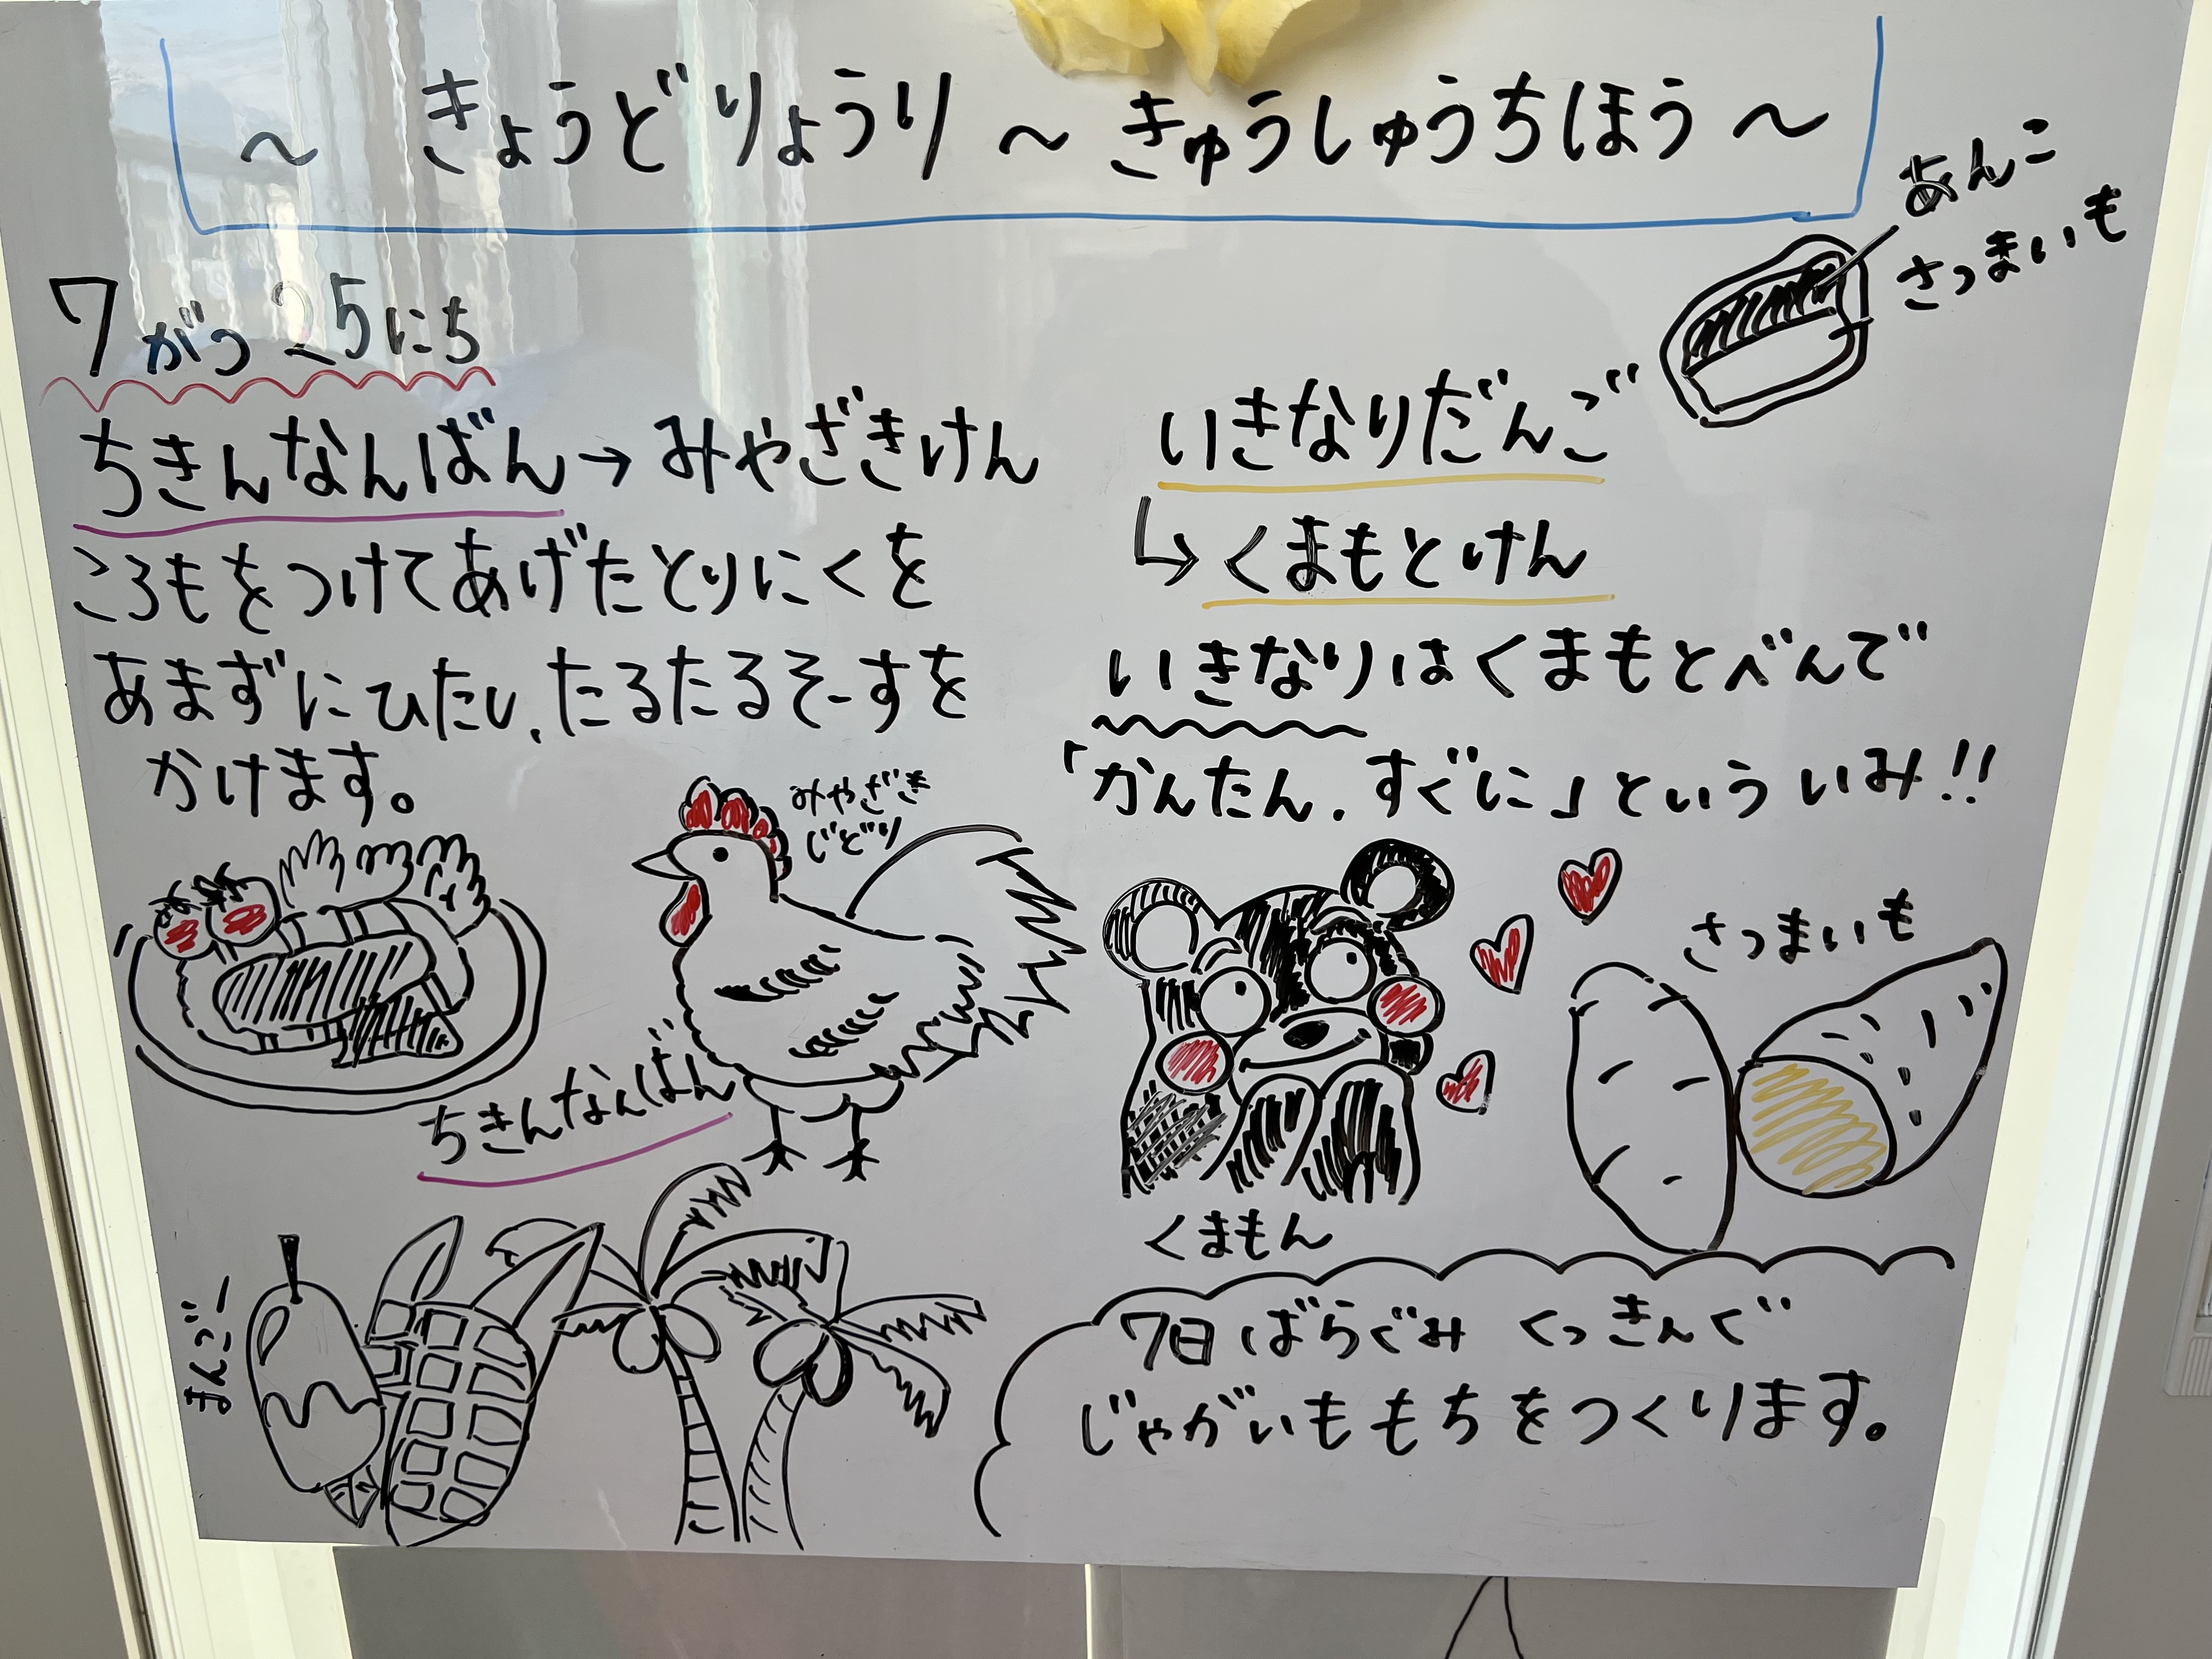 ～ きょうどりょうり ～ きゅうしゅうちほう ～
7がつ25にち
ちきんなんばん→みやざきけん
ころもをつけてあげたとりにくを
あまずにひたし、たるたるそーすを
かけます。
みやざき
じどり
ちきんなんばん
まんごー
あんこ
さつまいも
いきなりだんご
↳くまもとけん
いきなりはくまもとべんで
「かんたん、すぐに」といういみ!!
さつまいも
くまもん
7日 ばらぐみ くっきんぐ
じゃがいももちをつくります。